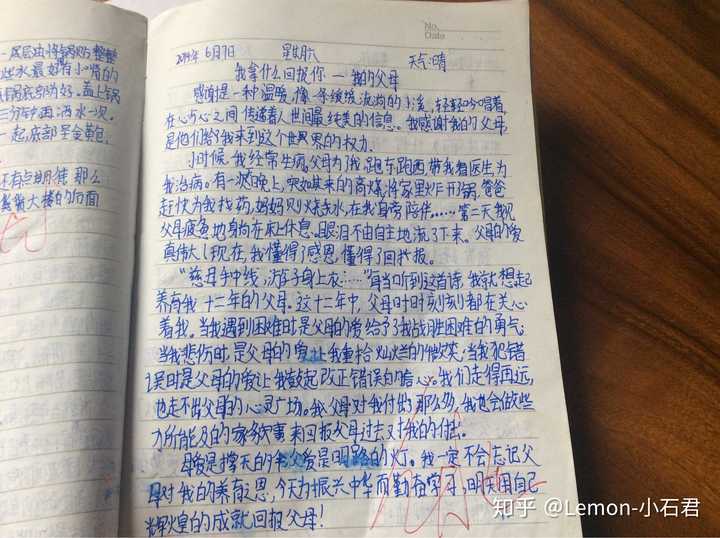 一层层由将锅贴整整
些水最好有小肾的
有锅底部为好。盖上锅
三分钟再洒水一次。
一起,底部呈金黄色,
还有点胡焦那么
餐的后面
No.
Date
年6月7日 星期六 天气:晴
我拿什么回报你 — 我的父母
感谢是一种温暖,像一条缓缓流淌的小溪,轻轻吟唱着,
在心与心之间传递着人世间最纯美的信息。我感谢我的父母,
是他们给了我来到这个世界的权力
小时候,我经常生病,父母为了我,跑东跑西,带我看医生为
我治病。有一次晚上,突如其来的高烧,将家里炸开了锅,爸爸
赶快为我找药,妈妈则烧热水,在我身旁陪伴……第二天我见
父母疲惫地躺在床上休息,眼泪不由自主地流了下来。父母的爱
真伟大!现在,我懂得了感恩,懂得了回报。
“慈母手中线,游子身上衣……”每当听到这首诗,我就想起
养育我十二年的父母。这十二年中,父母时时刻刻都在关心
着我。当我遇到困难时是父母的爱给予了我战胜困难的勇气
当我悲伤时,是父母的爱让我重拾灿烂的微笑;当我犯错
误时是父母的爱让我鼓起改正错误的信心。我们走得再远,
也走不出父母的心灵广场。我父母对我付出那么多,我也会做些
力所能及的家务事来回报父母过去对我的付出。
母爱是撑天的伞,父爱是明路的灯。我一定不会忘记父
母对我的养育之恩,今天为振兴中华而勤奋学习,明天用自己
辉煌的成就回报父母!
知乎 @Lemon-小石君